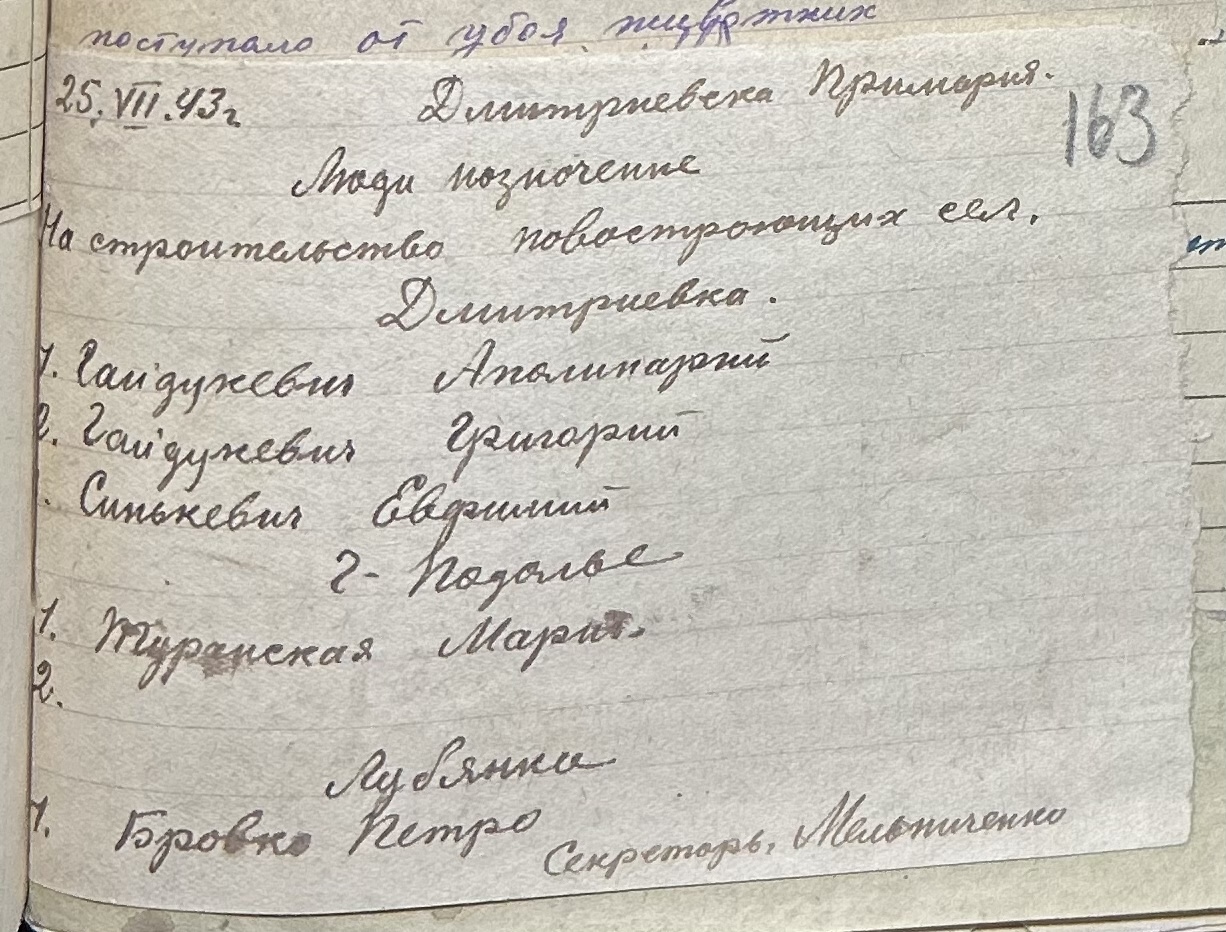 поступало от убоя животних
25.VII.43г Дмитриевска Примария.
163
Люди позначение
На строительство новостроющих сел.
Дмитриевка.
1. Гайдукевич Аполинарий
2. Гайдукевич Григорий
. Синькевич Евфимий
2- Подолье
1. Журанская Мария.
2.
Лубянка
1. Бровко Петро
Секреторь, Мельниченко